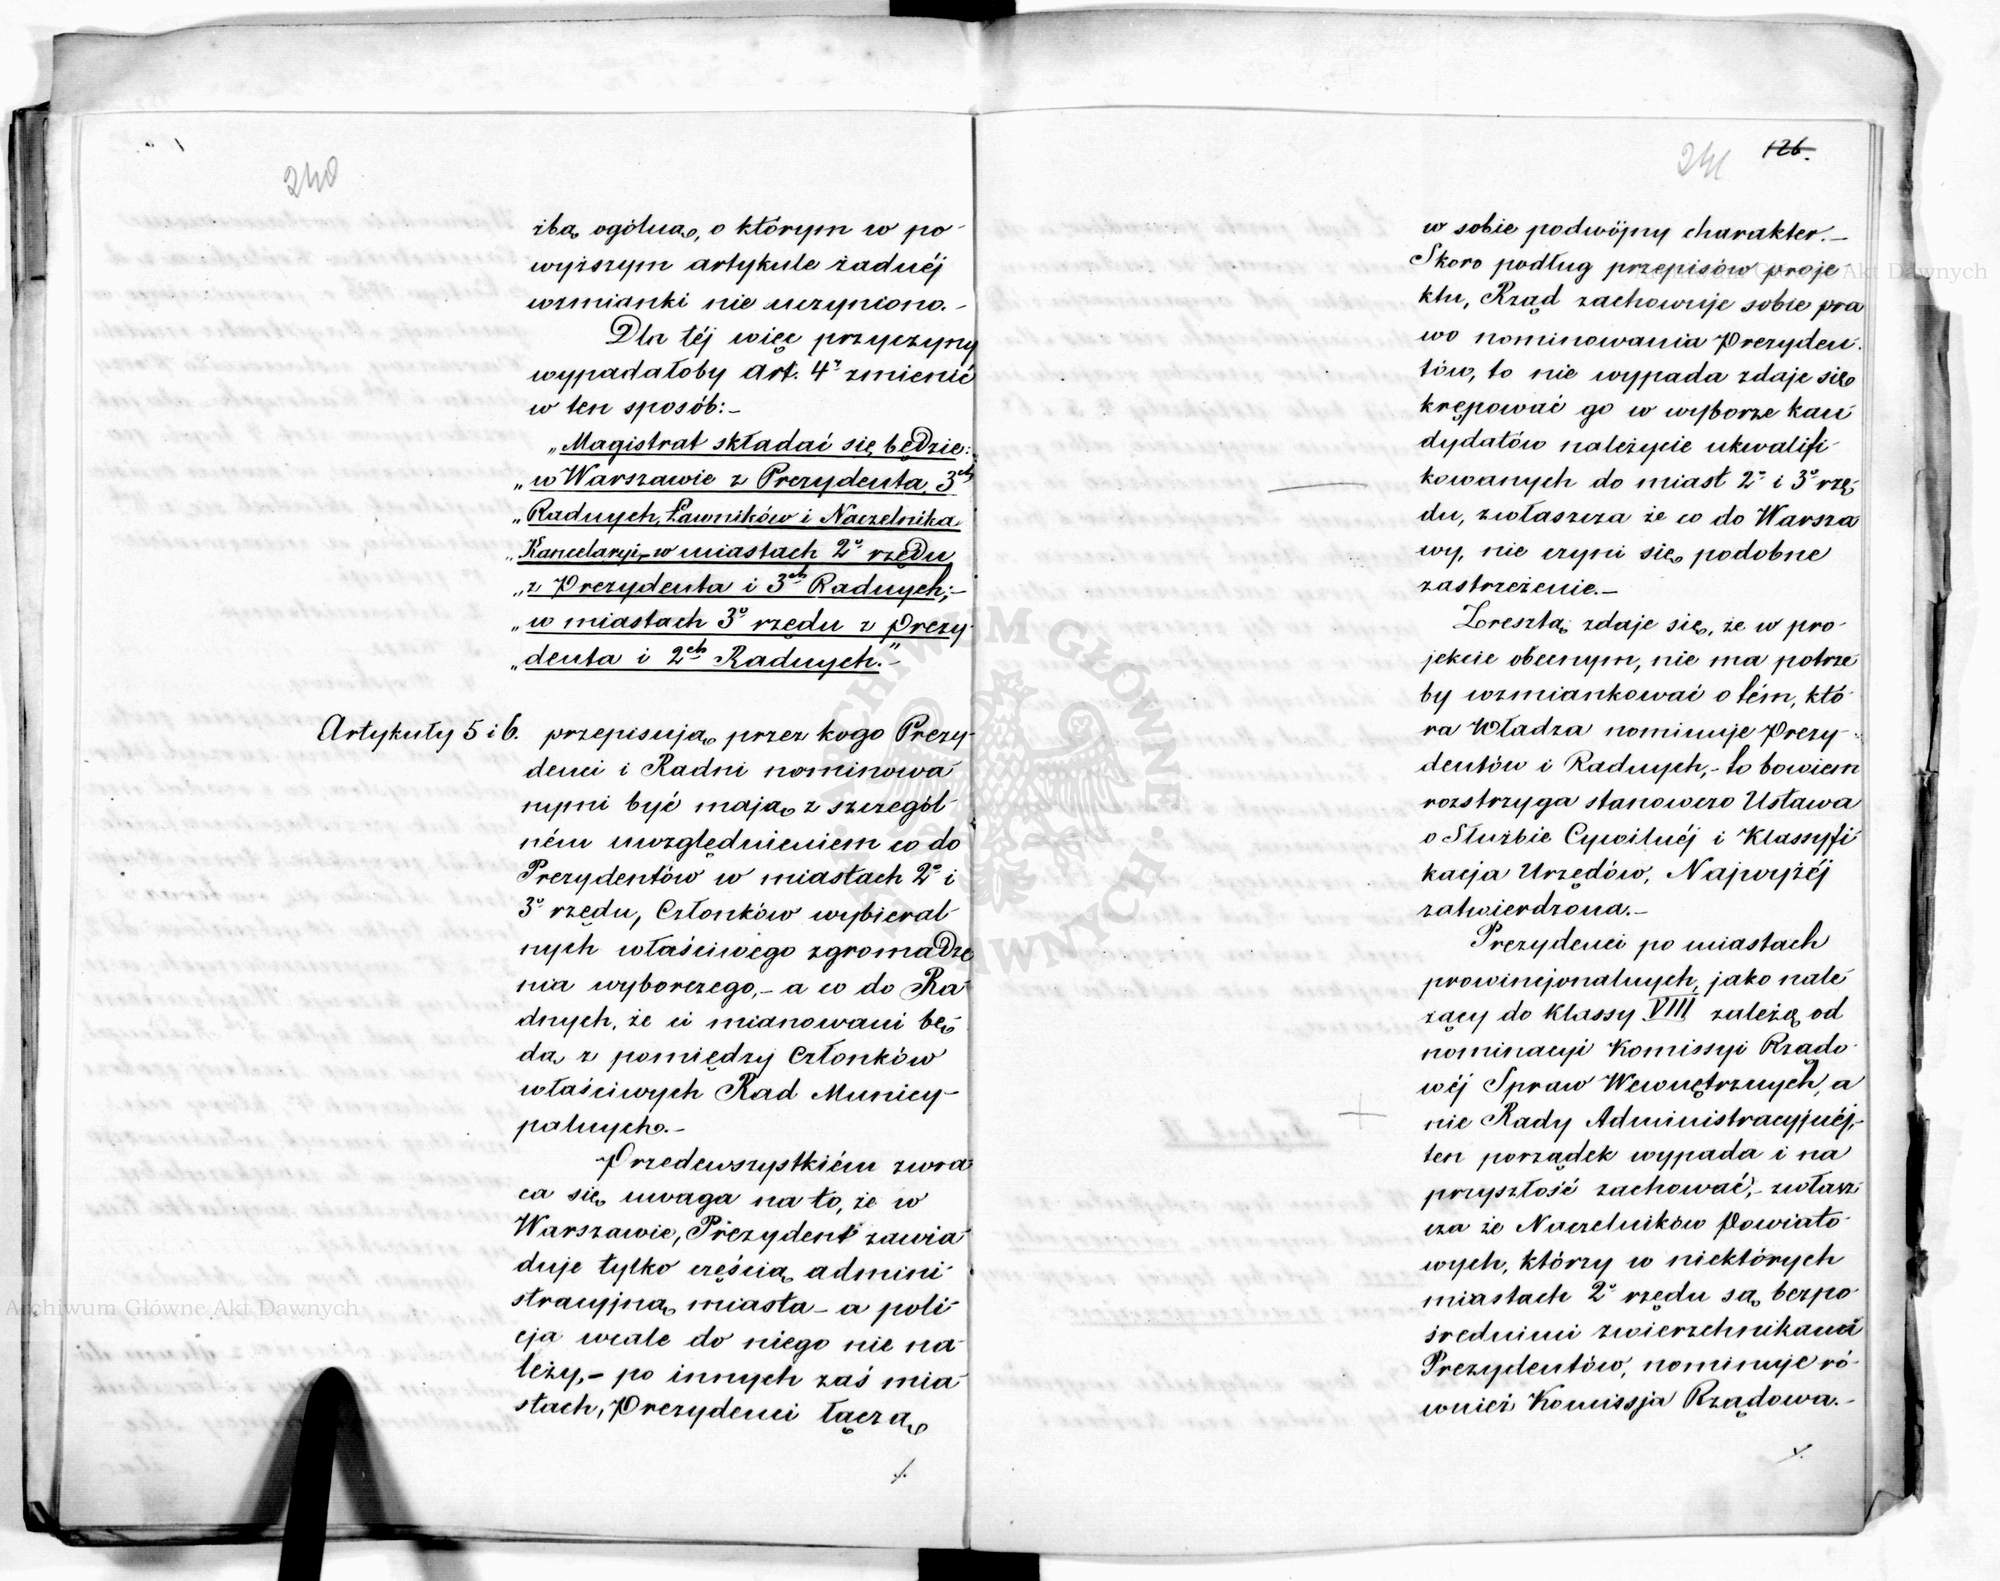 240
żbą ogólną, o którym w po-
wyższym artykule żadnéj
wzmianki nie uczyniono.-
Dla téj więc przyczyny
wypadałoby art. 4º zmienić
w ten sposób:-
„Magistrat składać się będzie:
„w Warszawie z Prezydenta, 3ch
„Radnych, Ławników i Naczelnika
„Kancelaryi,- w miastach 2º rzędu
„z Prezydenta i 3ch Radnych;-
„w miastach 3º rzędu z Prezy-
„denta i 2ch Radnych."-
Artykuły 5 i 6. przepisują, przez kogo Prezy-
denci i Radni nominowa-
nymi być mają, z szczegól-
ném uwzględnieniem co do
Prezydentów w miastach 2º i
3º rzędu, Członków wybieral-
nych właściwego zgromadze
nia wyborczego,- a co do Ra-
dnych, że ci mianowani bę-
dą z pomiędzy Członków
właściwych Rad Municy-
palnych.-
Przedewszystkiém zwra-
ca się uwaga na to, że w
Warszawie, Prezydent zawia-
duje tylko częścią admini-
stracyjną miasta- a poli-
cja wcale do niego nie na-
leży,- po innych zaś mia-
stach, Prezydenci łączą
./.
241 126.
w sobie podwójny charakter.-
Skoro podług przepisów proje-
ktu, Rząd zachowuje sobie pra
wo nominowania Prezyden-
tów, to nie wypada zdaje się
krępować go w wyborze kan-
dydatów należycie ukwalifi-
kowanych do miast 2º i 3º rzę-
du, zwłaszcza że co do Warsza
wy, nie czyni się podobne
zastrzeżenie.-
Zresztą zdaje się, że w pro-
jekcie obecnym, nie ma potrze-
by wzmiankować o tém, któ-
ra Władza nominuje Prezy-
dentów i Radnych,- to bowiem
rozstrzyga stanowczo Ustawa
o Służbie Cywilnéj i Klassyfi-
kacja Urzędów, Najwyżéj
zatwierdzona.-
Prezydenci po miastach
prowincjonalnych, jako nale-
żący do Klassy VIII zależą od
nominacyi Komissyi Rządo-
wéj Spraw Wewnętrznych, a
nie Rady Administracyjnéj,-
ten porządek wypada i na
przyszłość zachować,- zwłasz-
cza że Naczelników Powiato-
wych, którzy w niektórych
miastach 2º rzędu są bezpo-
średnimi zwierzchnikami
Prezydentów, nominuje ró-
wnież Komissja Rządowa.-
./.
Archiwum Główne Akt Dawnych
Akt Dawnych
ARCHIWUM GŁÓWNE AKT DAWNYCH